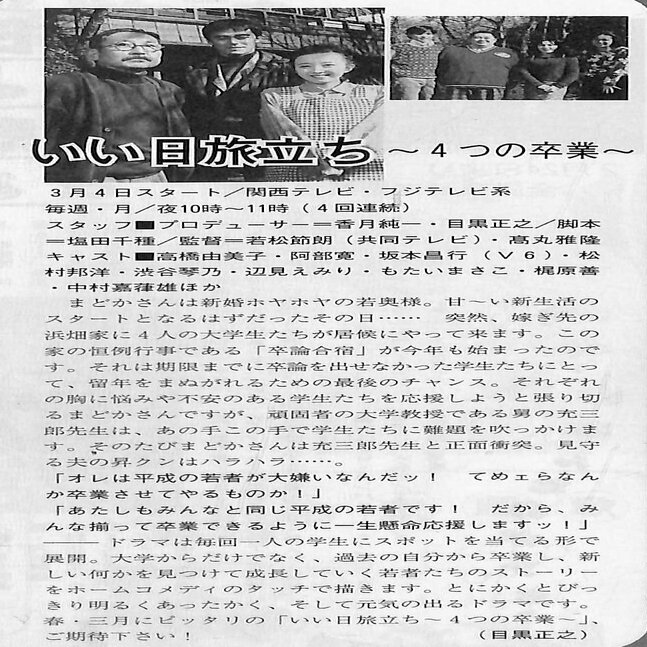 いい日旅立ち ～４つの卒業～
３月４日スタート／関西テレビ・フジテレビ系
毎週・月／夜10時～11時（４回連続）
スタッフ■プロデューサー＝香月純一・目黒正之／脚本
＝塩田千種／監督＝若松節朗（共同テレビ）・高丸雅隆
キャスト■高橋由美子・阿部寛・坂本昌行（Ｖ６）・松
村邦洋・渋谷琴乃・辺見えみり・もたいまさこ・梶原善
・中村嘉葎雄ほか
　まどかさんは新婚ホヤホヤの若奥様。甘～い新生活の
スタートとなるはずだったその日……　突然、嫁ぎ先の
浜畑家に４人の大学生たちが居候にやって来ます。この
家の恒例行事である「卒論合宿」が今年も始まったので
す。それは期限までに卒論を出せなかった学生たちにとっ
て、留年をまぬがれるための最後のチャンス。それぞれ
の胸に悩みや不安のある学生たちを応援しようと張り切
るまどかさんですが、頑固者の大学教授である舅の充三
郎先生は、あの手この手で学生たちに難題を吹っかけま
す。そのたびまどかさんは充三郎先生と正面衝突。見守
る夫の昇クンはハラハラ……。
「オレは平成の若者が大嫌いなんだッ！　てめェらなん
か卒業させてやるものか！」
「あたしもみんなと同じ平成の若者です！　だから、み
んな揃って卒業できるように一生懸命応援しますッ！」
――ドラマは毎回一人の学生にスポットを当てる形で
展開。大学からだけでなく、過去の自分から卒業し、新
しい何かを見つけて成長していく若者たちのストーリー
をホームコメディのタッチで描きます。とにかくとびっ
きり明るくあったかく、そして元気の出るドラマです。
春・三月にピッタリの「いい日旅立ち～４つの卒業～」、
ご期待下さい！　（目黒正之）